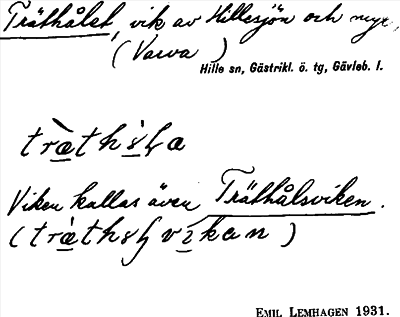 Träthålet, vik av Hillesjön och myr,
(Varva)
Hille sn, Gästrikl. ö. tg, Gävleb. l.
Viken kallas även Träthålsviken.
EMIL LEMHAGEN 1931.